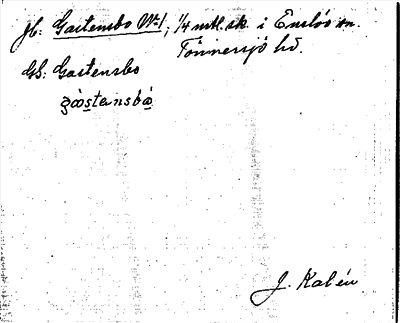 Jb: Gastensbo Nº1, 1/4 mtl. sk. i Enslöv sn.
Tönnersjö hd.
GS: Gastensbo
gàstensbò
J. Kalén